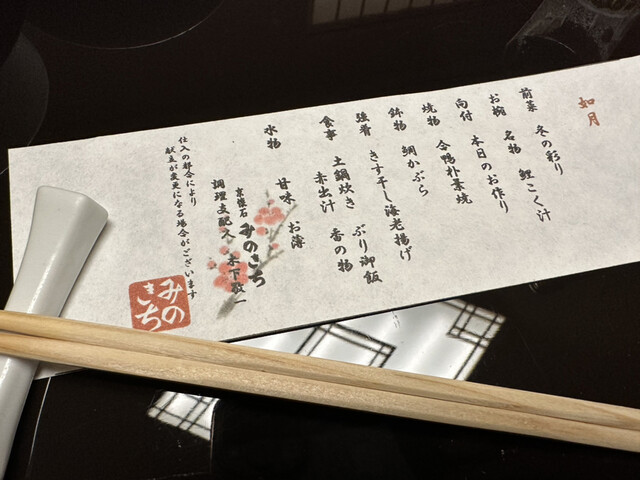 如月
前菜 冬の彩り
お椀 名物 鯉こく汁
向付 本日のお作り
焼物 合鴨朴葉焼
鉢物 鯛かぶら
強肴 きす干し海老揚げ
食事 土鍋炊き ぶり御飯
赤出汁 香の物
水物 甘味 お薄
京懐石 みのきち
調理支配人 木下敬一
仕入の都合により
献立が変更になる場合がございます
みのきち